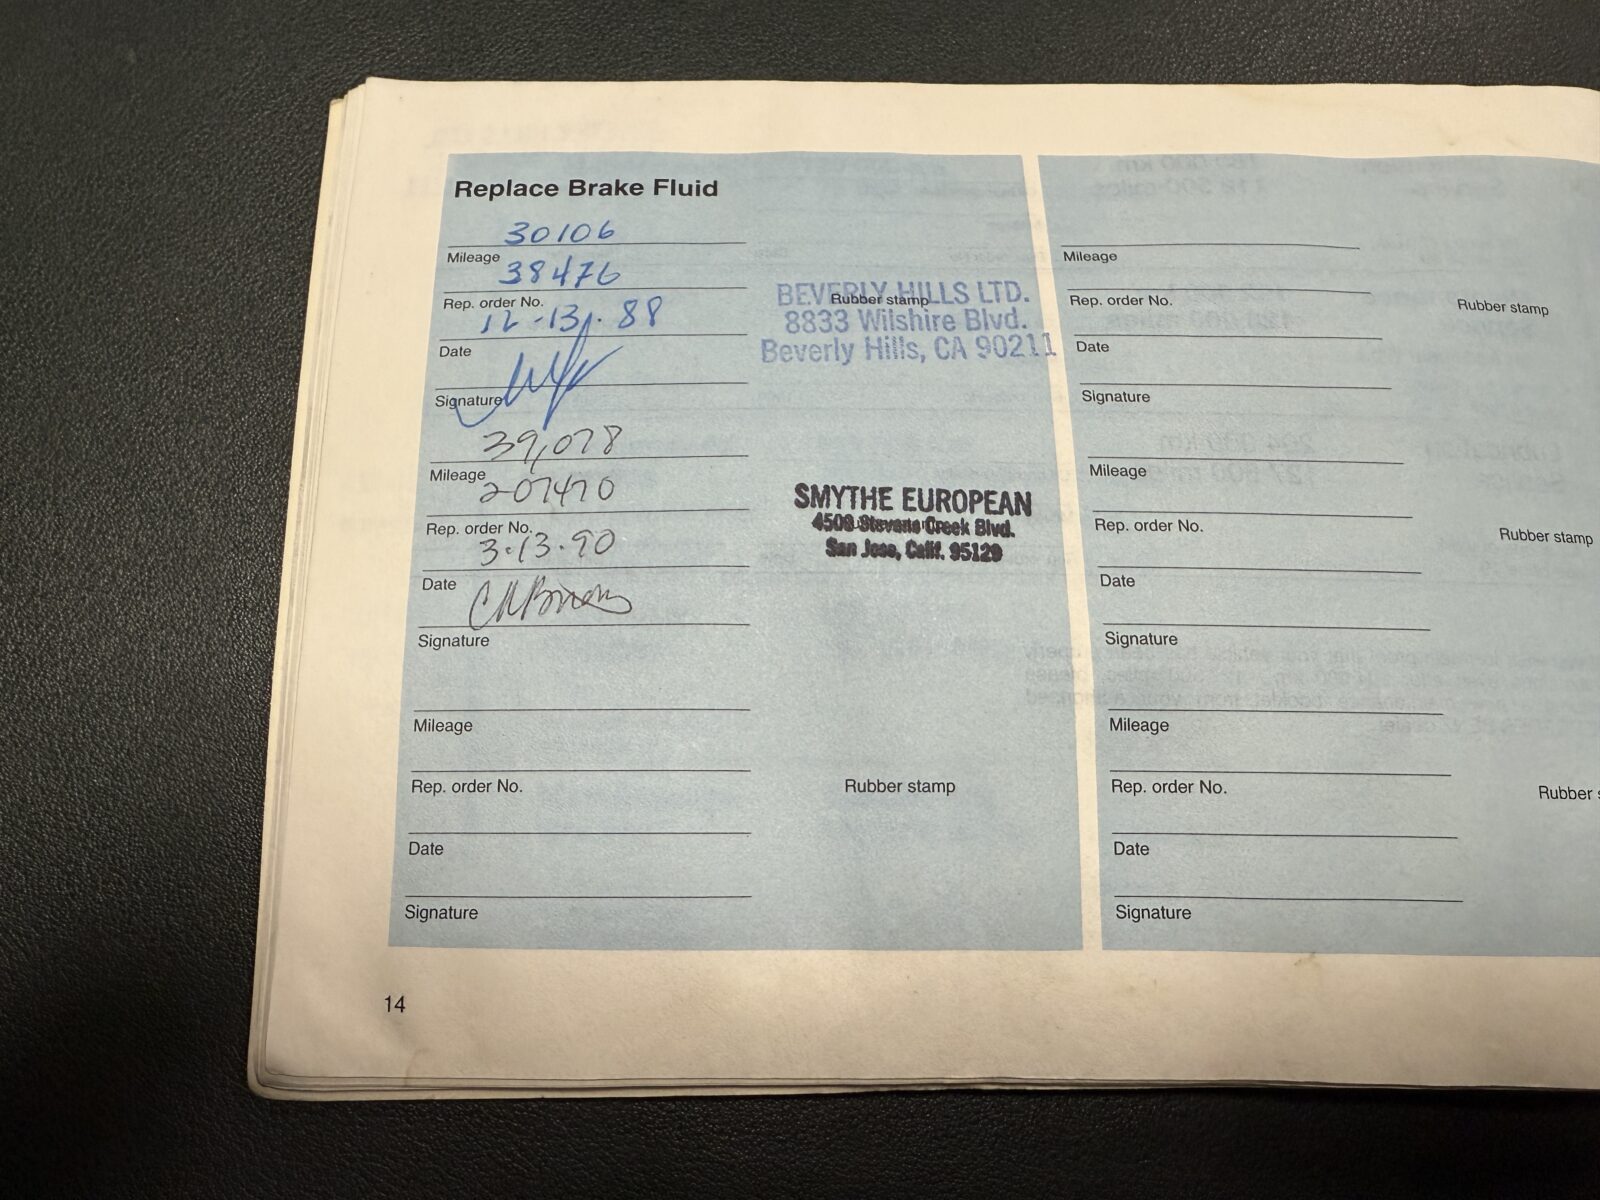 Replace Brake Fluid
30106
Mileage
38476
Rep. order No.
12-13-88
Date
Signature
BEVERLY HILLS LTD.
Rubber stamp
8833 Wilshire Blvd.
Beverly Hills, CA 90211
39,078
Mileage
207470
Rep. order No.
3-13-90
Date
Signature
SMYTHE EUROPEAN
4509 Stevens Creek Blvd.
San Jose, Calif. 95129
Mileage
Rep. order No.
Rubber stamp
Date
Signature
Mileage
Rep. order No.
Rubber stamp
Date
Signature
Mileage
Rep. order No.
Rubber stamp
Date
Signature
Mileage
Rep. order No.
Rubber
Date
Signature
14